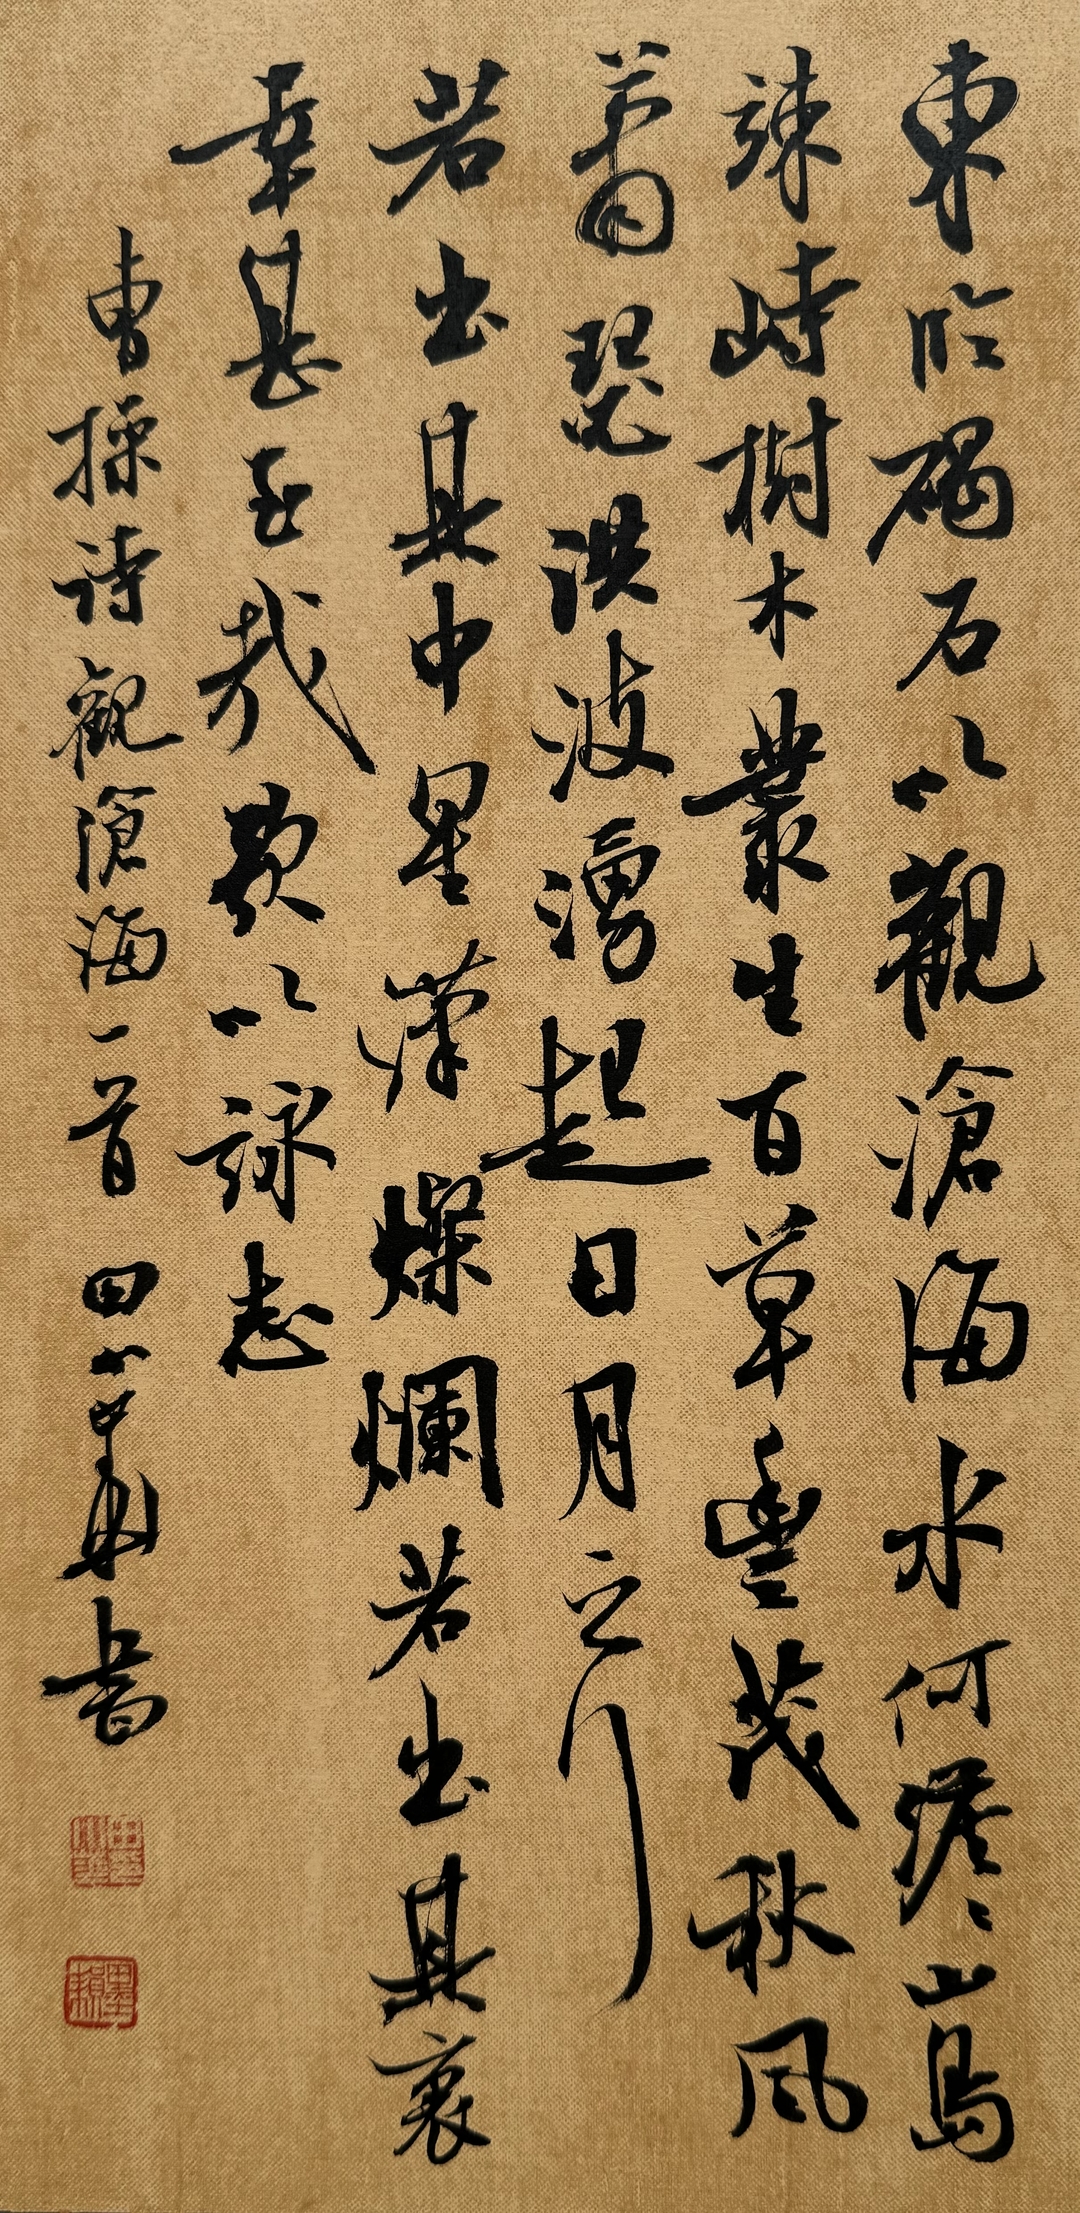 東临碣石以觀滄海水何澹〻山島
竦峙樹木叢生百草豐茂秋風
蕭瑟洪波湧起日月之行
若出其中星漢燦爛若出其裏
幸甚至哉歌以詠志
曹操詩觀滄海一首 田 書